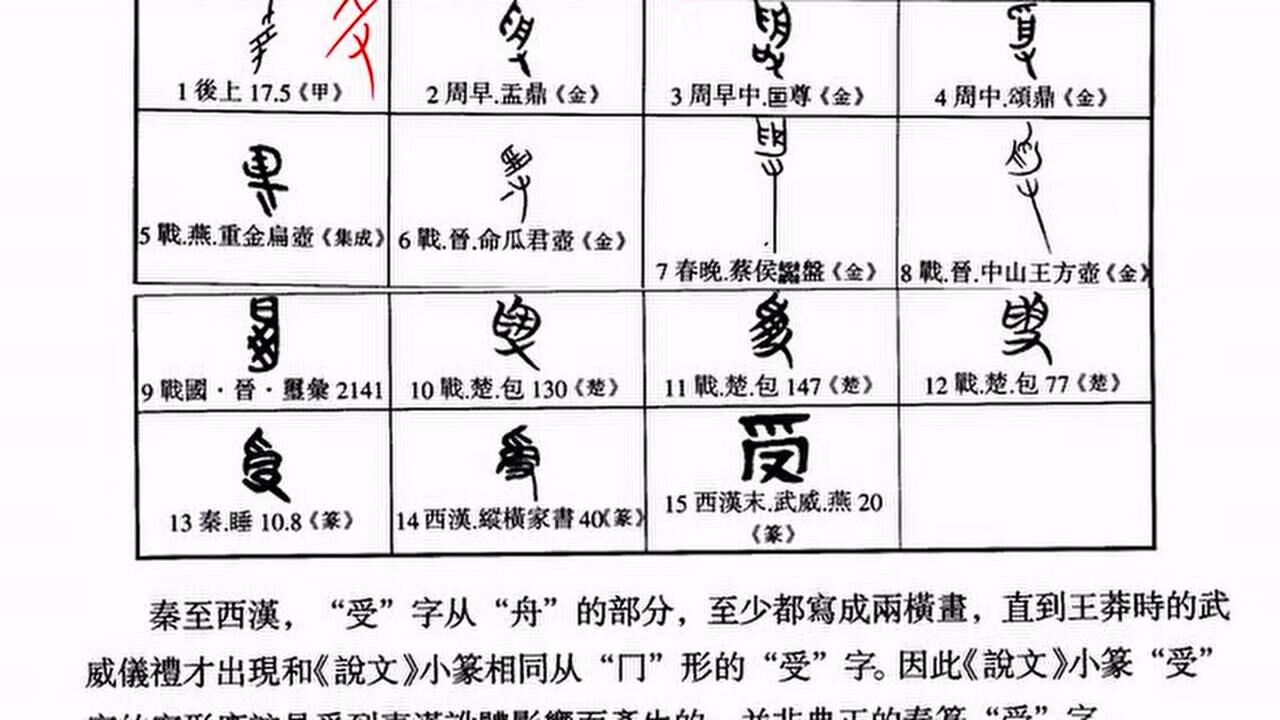 1 後上 17.5《甲》
2 周早.盂鼎《金》
3 周早中.尊《金》
4 周中.頌鼎《金》
5 戰.燕.重金扁壺《集成》
6 戰.晉.命瓜君壺《金》
7 春晚.蔡侯盤《金》
8 戰.晉.中山王方壺《金》
9 戰國·晉·璽彙 2141
10 戰.楚.包 130《楚》
11 戰.楚.包 147《楚》
12 戰.楚.包 77《楚》
13 秦.睡 10.8《篆》
14 西漢.縱橫家書 40《篆》
15 西漢末.武威.燕 20
《篆》
秦至西漢，“受”字从“舟”的部分，至少都寫成兩橫畫，直到王莽時的武
威儀禮才出現和《說文》小篆相同从“冂”形的“受”字。因此《說文》小篆“受”